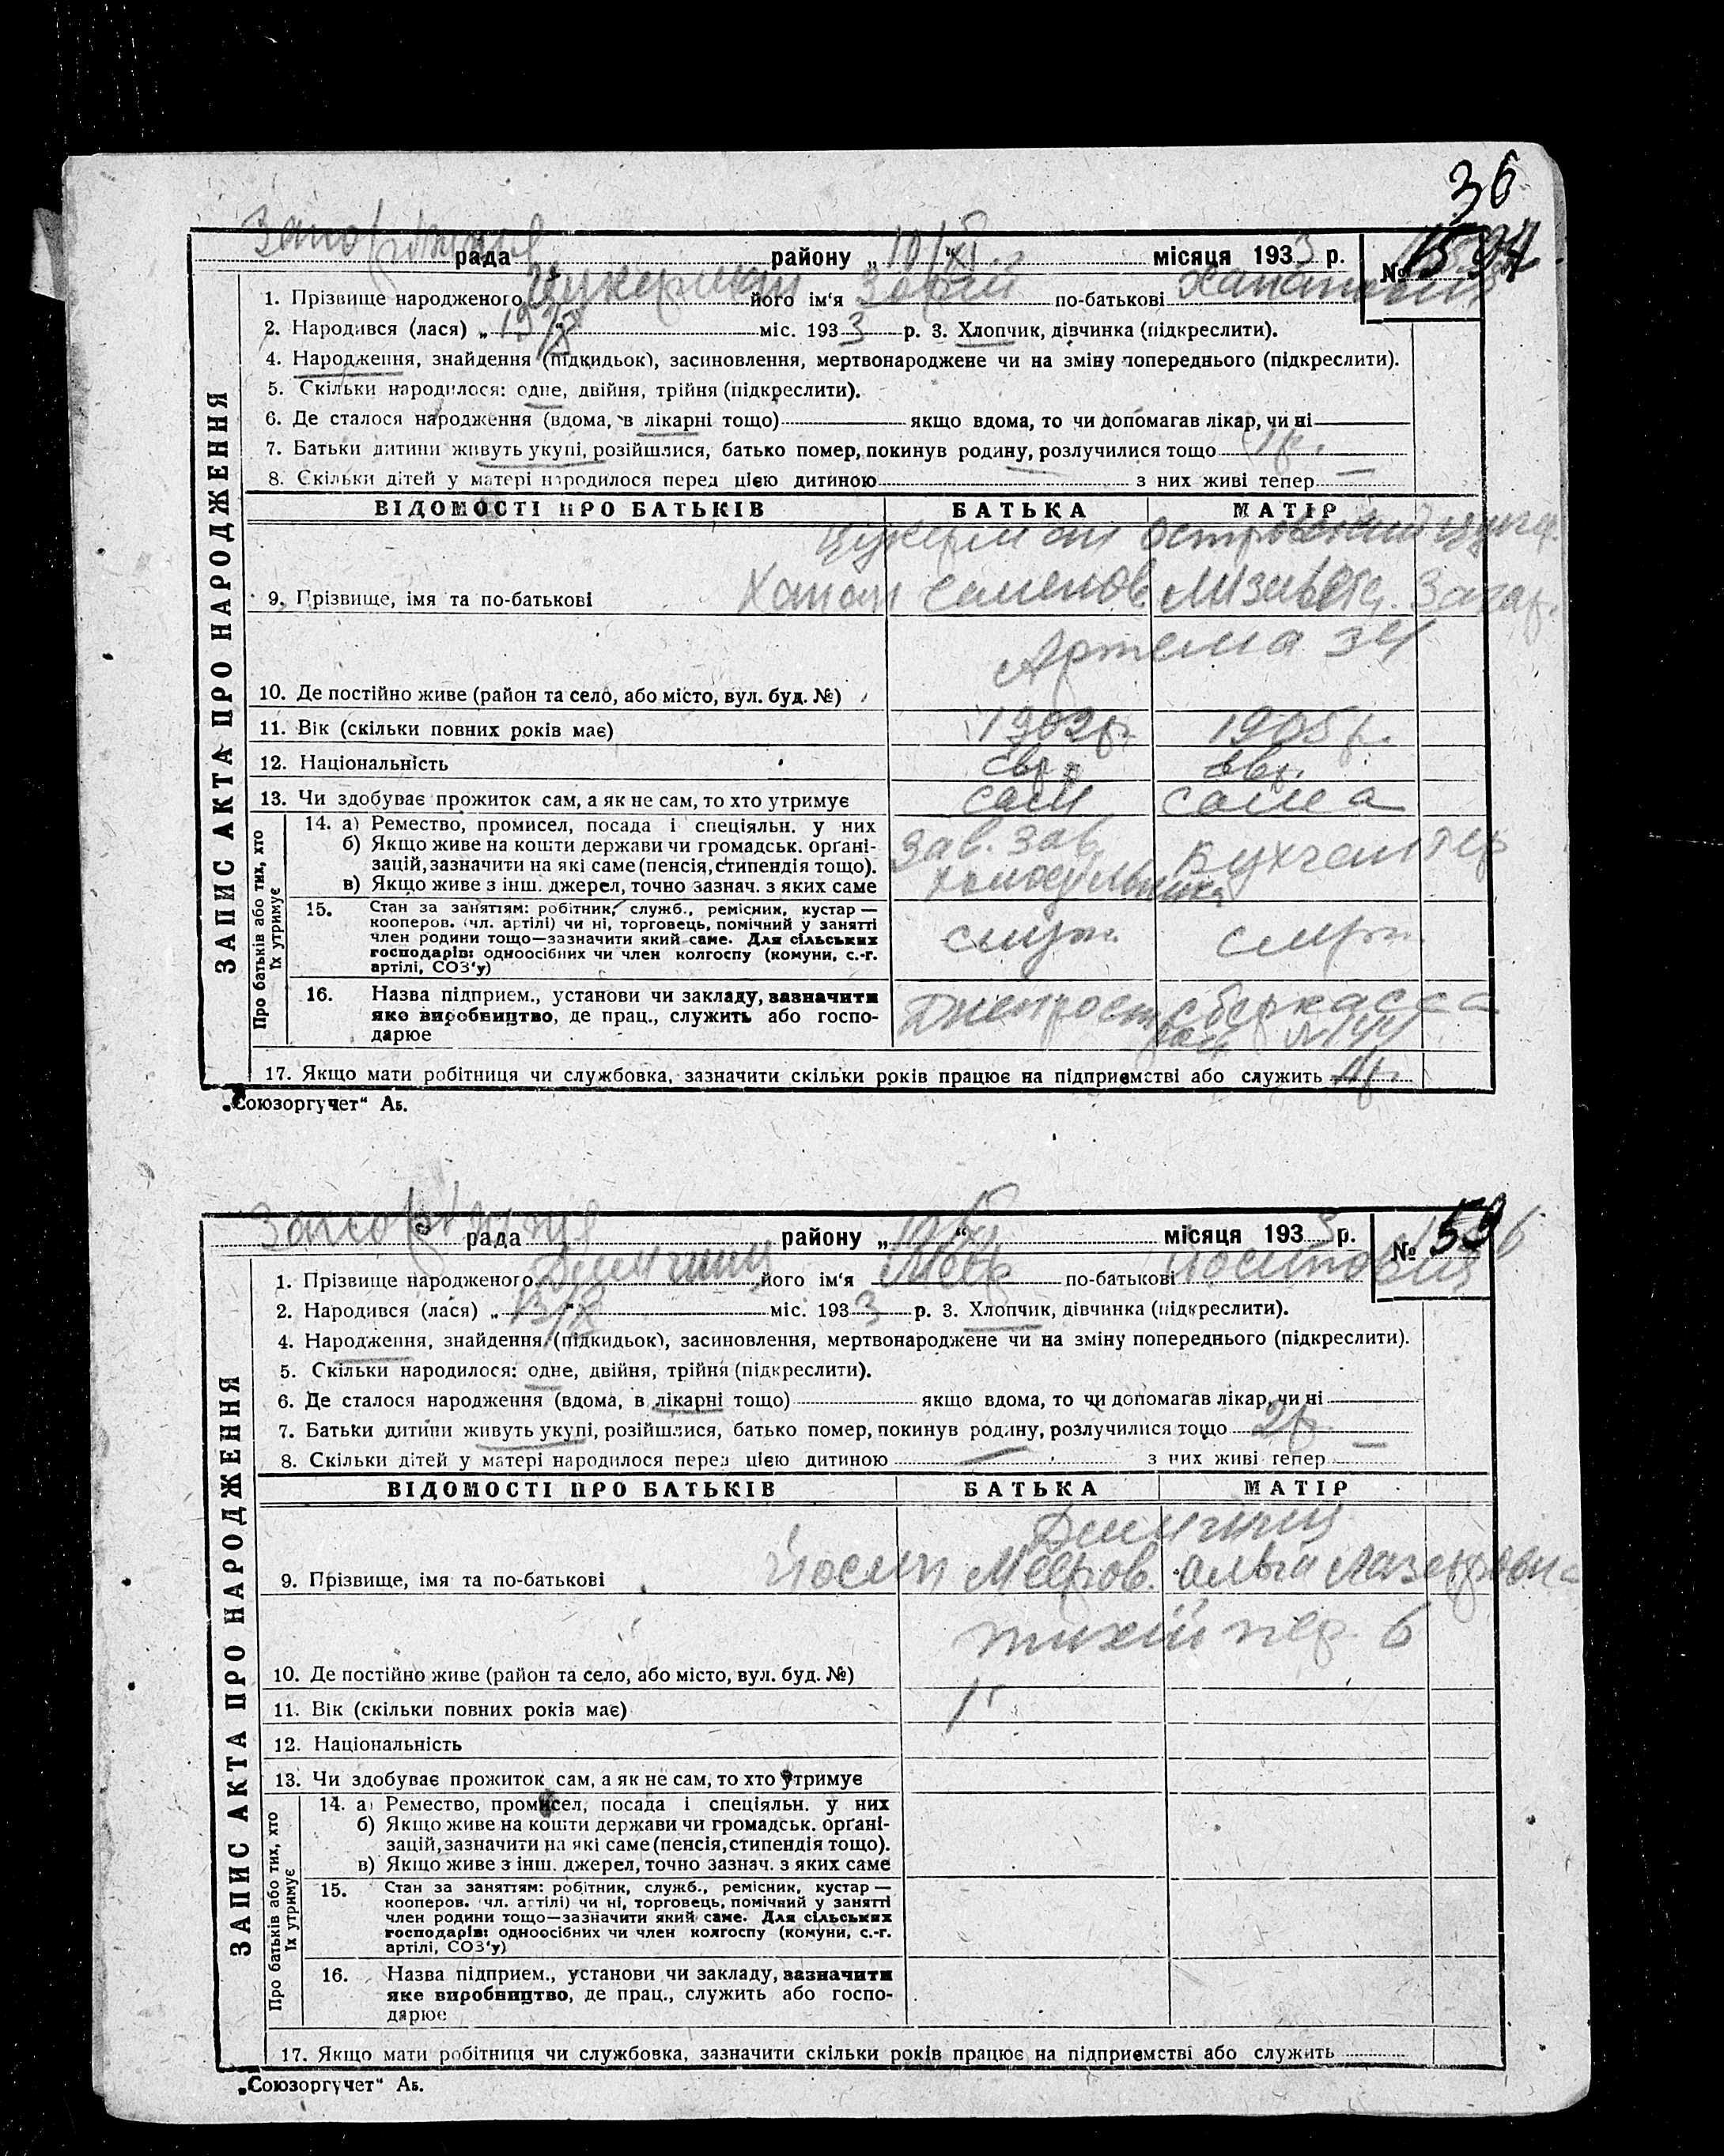 36
Запоріжжя
рада району „10/XI“ місяця 1933 р. № 1594
1. Прізвище народженого Цукерман його ім'я по-батькові
2. Народився (лася) „ міс. 1933 р. 3. Хлопчик, дівчинка (підкреслити).
4. Народження, знайдення (підкидьок), засиновлення, мертвонароджене чи на зміну попереднього (підкреслити).
5. Скільки народилося: одне, двійня, трійня (підкреслити).
6. Де сталося народження (вдома, в лікарні тощо) якщо вдома, то чи допомагав лікар, чи ні
7. Батьки дитини живуть укупі, розійшлися, батько помер, покинув родину, розлучилися тощо 1р.
8. Скільки дітей у матері народилося перед цією дитиною з них живі тепер —
ЗАПИС АКТА ПРО НАРОДЖЕННЯ
ВІДОМОСТІ ПРО БАТЬКІВ БАТЬКА МАТІР
Цукерман
9. Прізвище, імя та по-батькові Ханан Семенов. Лізавета Захар.
Артема 34
10. Де постійно живе (район та село, або місто, вул. буд. №)
11. Вік (скільки повних років має) 1902р. 1905р.
12. Національність євр. євр.
13. Чи здобуває прожиток сам, а як не сам, то хто утримує сам сама
Про батьків або тих, хто їх утримує
14. а) Ремество, промисел, посада і спеціяльн. у них Зав. зав.
б) Якщо живе на кошти держави чи громадськ. орґані-
зацій, зазначити на які саме (пенсія, стипендія тощо). холодильника бухгалтер
в) Якщо живе з інш. джерел, точно зазнач. з яких саме
15. Стан за заняттям: робітник, служб., ремісник, кустар —
кооперов. (чл. артілі) чи ні, торговець, помічний у занятті
член родини тощо—зазначити який саме. Для сільських служ. служ.
господарів: одноосібних чи член колгоспу (комуни, с.-г.
артілі, СОЗ'у)
16. Назва підприєм., установи чи закладу, зазначити Днепрострой сберкасса
яко виробництво, де прац., служить або госпо-
дарює
17. Якщо мати робітниця чи службовка, зазначити скільки років працює на підприємстві або служить
„Союзоргучет“ Аб.
Запоріжжя
рада району „10/XI“ місяця 1933 р. №
1. Прізвище народженого його ім'я Меєр по-батькові Йосипович
2. Народився (лася) „ міс. 1933 р. 3. Хлопчик, дівчинка (підкреслити).
4. Народження, знайдення (підкидьок), засиновлення, мертвонароджене чи на зміну попереднього (підкреслити).
5. Скільки народилося: одне, двійня, трійня (підкреслити).
6. Де сталося народження (вдома, в лікарні тощо) якщо вдома, то чи допомагав лікар, чи ні
7. Батьки дитини живуть укупі, розійшлися, батько помер, покинув родину, розлучилися тощо 2р.
8. Скільки дітей у матері народилося перед цією дитиною — з них живі тепер —
ЗАПИС АКТА ПРО НАРОДЖЕННЯ
ВІДОМОСТІ ПРО БАТЬКІВ БАТЬКА МАТІР
9. Прізвище, імя та по-батькові Йосип Меєров. Лазаровна
тихий пер. 6
10. Де постійно живе (район та село, або місто, вул. буд. №)
11. Вік (скільки повних років має)
12. Національність
13. Чи здобуває прожиток сам, а як не сам, то хто утримує
Про батьків або тих, хто їх утримує
14. а) Ремество, промисел, посада і спеціяльн. у них
б) Якщо живе на кошти держави чи громадськ. орґані-
зацій, зазначити на які саме (пенсія, стипендія тощо).
в) Якщо живе з інш. джерел, точно зазнач. з яких саме
15. Стан за заняттям: робітник, служб., ремісник, кустар —
кооперов. (чл. артілі) чи ні, торговець, помічний у занятті
член родини тощо—зазначити який саме. Для сільських
господарів: одноосібних чи член колгоспу (комуни, с.-г.
артілі, СОЗ'у)
16. Назва підприєм., установи чи закладу, зазначити
яке виробництво, де прац., служить або госпо-
дарює
17. Якщо мати робітниця чи службовка, зазначити скільки років працює на підприємстві або служить
„Союзоргучет“ Аб.